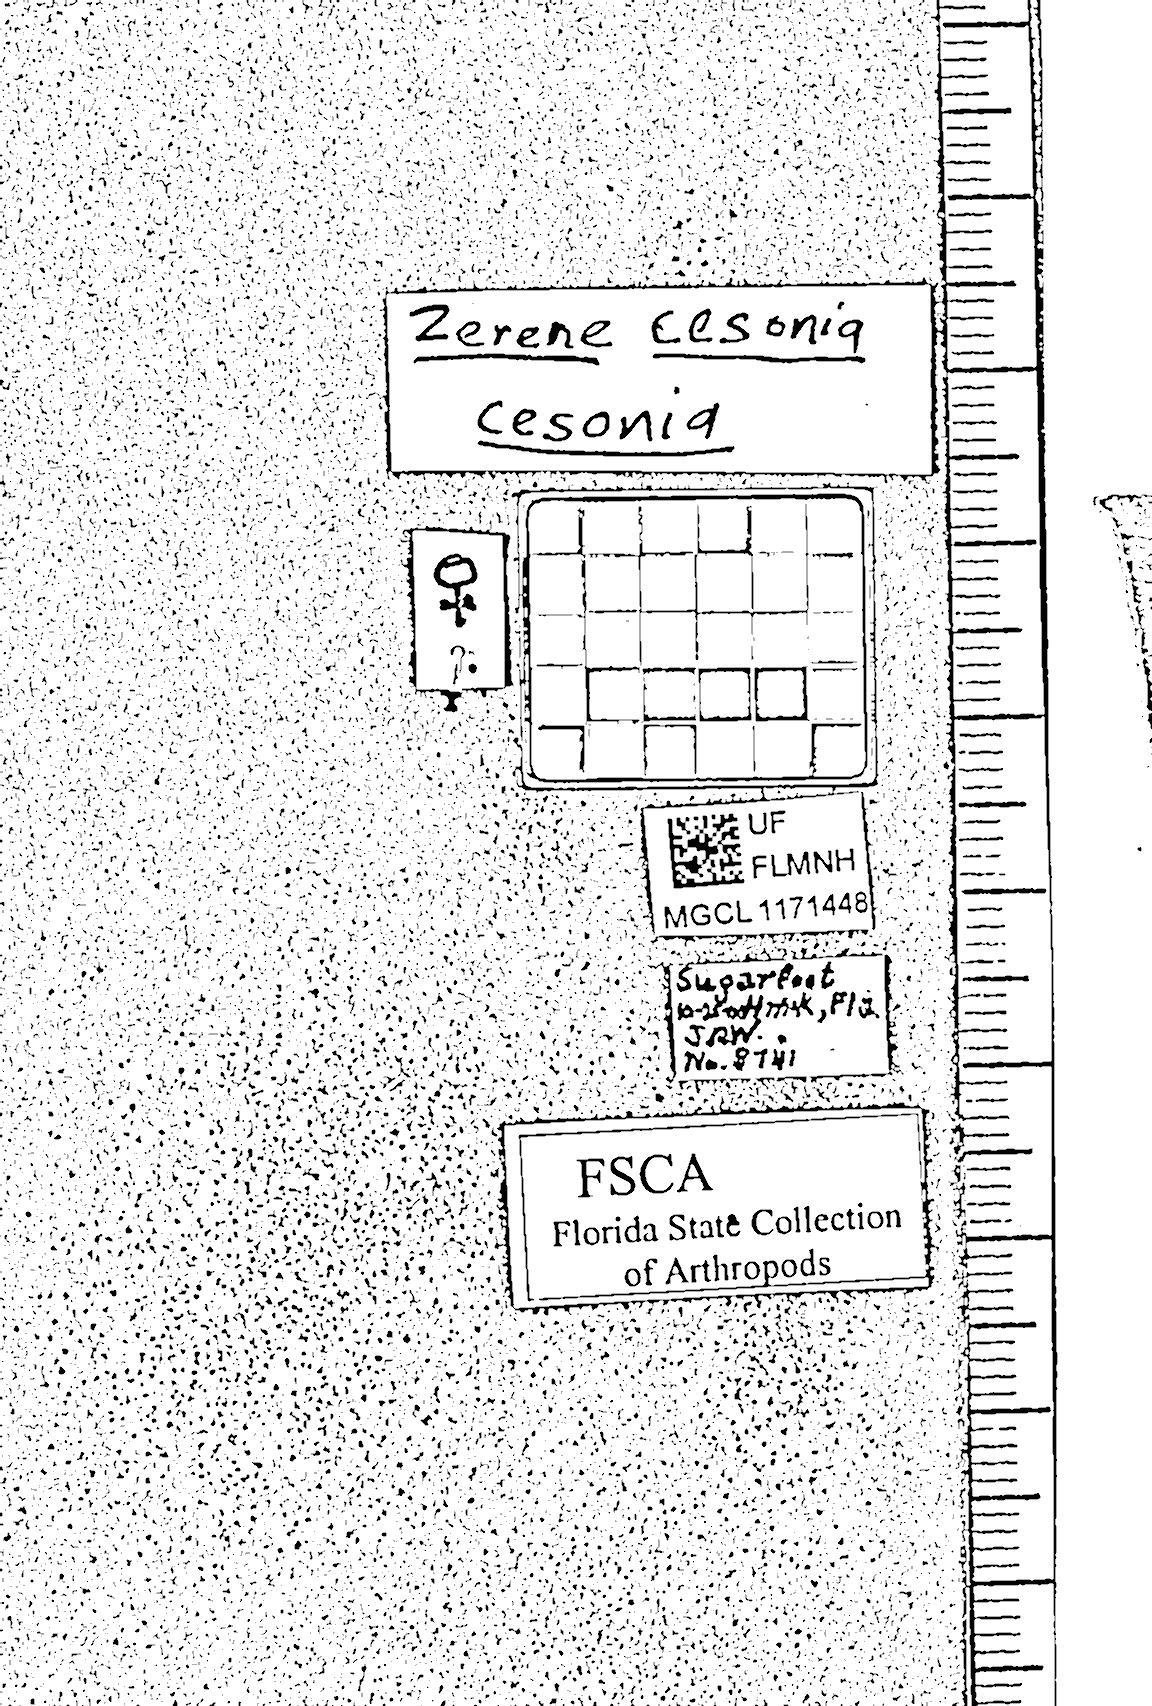 Zerene cesonia
cesonia
♀
?.
UF
FLMNH
MGCL 1171448
Sugarfoot
Fla.
JRW.
No. 8741
FSCA
Florida State Collection
of Arthropods